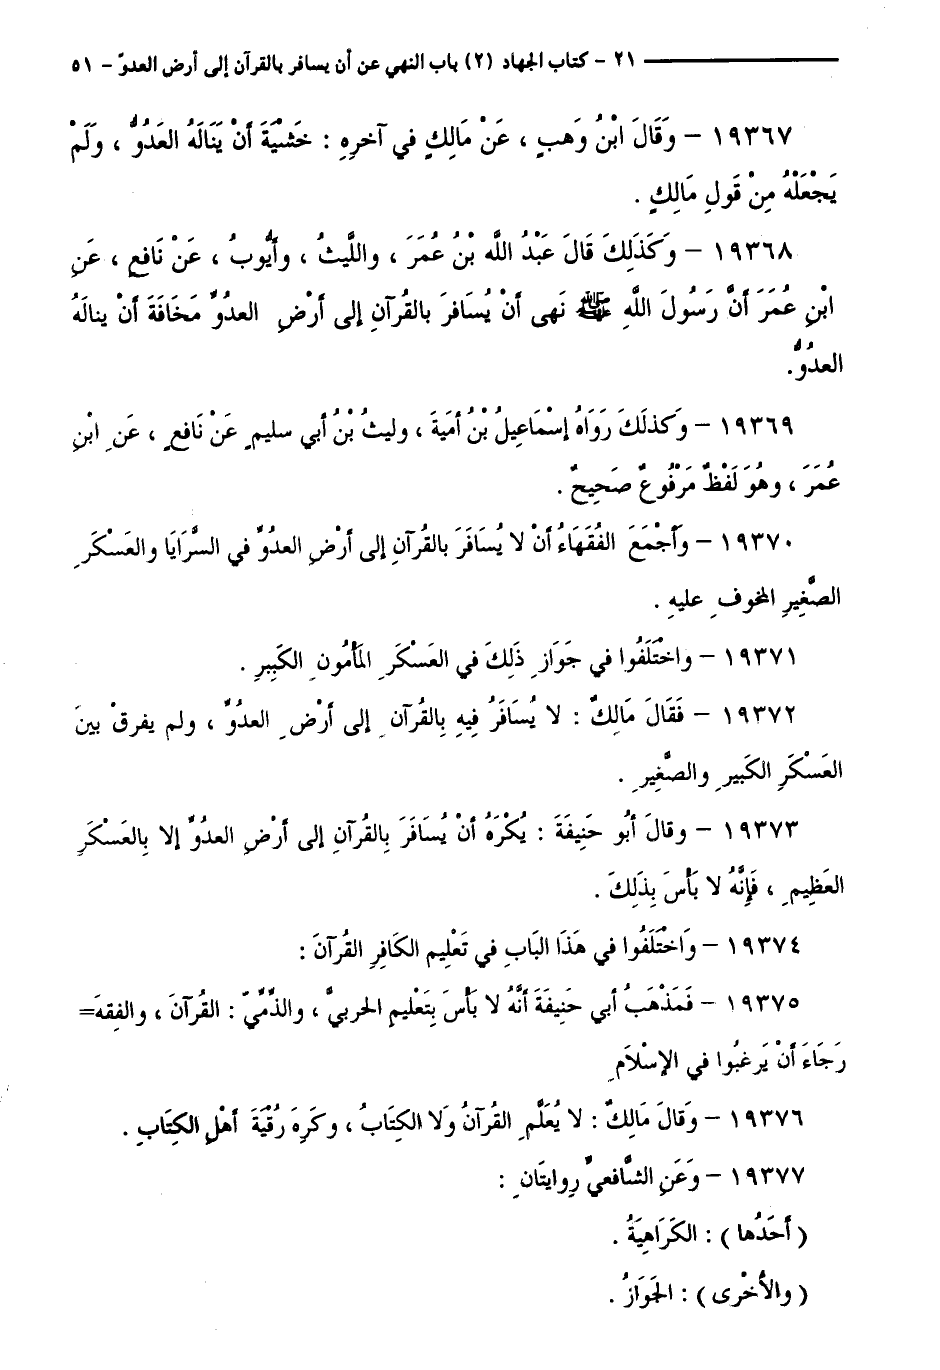 ٢١ - كتاب الجهاد (٢) باب النهي عن أن يسافر بالقرآن إلى أرض العدوّ - ٥١
١٩٣٦٧ - وَقَالَ ابْنُ وَهبٍ ، عَنْ مَالِكٍ في آخرِهِ : خَشْيَةَ أَنْ يَنَالَهُ العَدُوُّ ، وَلَمْ
يَجْعَلْهُ مِنْ قَولِ مَالِكٍ .
١٩٣٦٨ - وَكَذَلِكَ قَالَ عَبْدُ اللَّه بْنُ عُمَرَ ، واللَّيثُ ، وأَيُّوبُ ، عَنْ نَافعٍ ، عَنِ
ابْنِ عُمَرَ أَنَّ رَسُولَ اللَّهِ ﷺ نَهى أنْ يُسَافرَ بالقُرآنِ إلى أرْضِ العدوِّ مَخَافَةَ أنْ ينالَهُ
العدُوُّ.
١٩٣٦٩ - وَكَذلَكَ رَوَاهُ إسْمَاعِيلُ بْنُ أمَيَةَ ، وليثُ بْنُ أبي سليمٍ عَنْ نَافعٍ ، عَنِ ابْنِ
عُمَرَ ، وهُوَ لَفْظٌ مَرْفُوعٌ صَحِيحٌ .
١٩٣٧٠ - وأَجْمَعَ الفُقَهَاءُ أنْ لا يُسَافَرَ بالقُرآنِ إلى أرْضِ العدوِّ في السَّرَايَا والعَسْكَرِ
الصَّغِيرِ المخوفِ عليهِ .
١٩٣٧١ - واخْتَلَفُوا في جَوَازِ ذَلِكَ في العَسْكَرِ المَأمُونِ الكَبِيرِ .
١٩٣٧٢ - فَقَالَ مَالِكٌ : لا يُسَافَرُ فِيهِ بِالقُرآنِ إلى أرْضِ العدُوِّ ، ولم يفرقْ بينَ
العَسْكَرِ الكَبيرِ والصَّغِيرِ .
١٩٣٧٣ - وقالَ أَبُو حَنِيفَةَ : يُكْرَهُ أنْ يُسَافَرَ بِالقُرآنِ إلى أرْضِ العدُوِّ إلا بِالعَسْكَرِ
العَظِيمِ ، فَإِنَّهُ لا بَأسَ بِذَلِكَ .
١٩٣٧٤ - وَاخْتَلَفُوا في هَذَا البَابِ في تَعْلِيم الكَافِرِ القُرآنَ :
١٩٣٧٥ - فَمَذْهَبُ أبي حَنِيفَةَ أنَّهُ لا بَأسَ بِتَعْلِيمِ الحربيِّ ، والذِّمِّيّ : القُرآنَ ، والفِقهَ=
رَجَاءَ أنْ يَرغبُوا في الإسْلاَمِ
١٩٣٧٦ - وَقالَ مَالِكٌ : لا يُعَلَّمِ القُرآنُ ولا الكِتَابُ ، وكَرِهَ رُقْيَةَ أهْلِ الكِتَابِ .
١٩٣٧٧ - وَعَنِ الشَّافعيِّ رِوايتَانِ :
( أَحَدُها ) : الكَرَاهِيَةُ .
( والأُخْرى ) : الجَوَازُ .